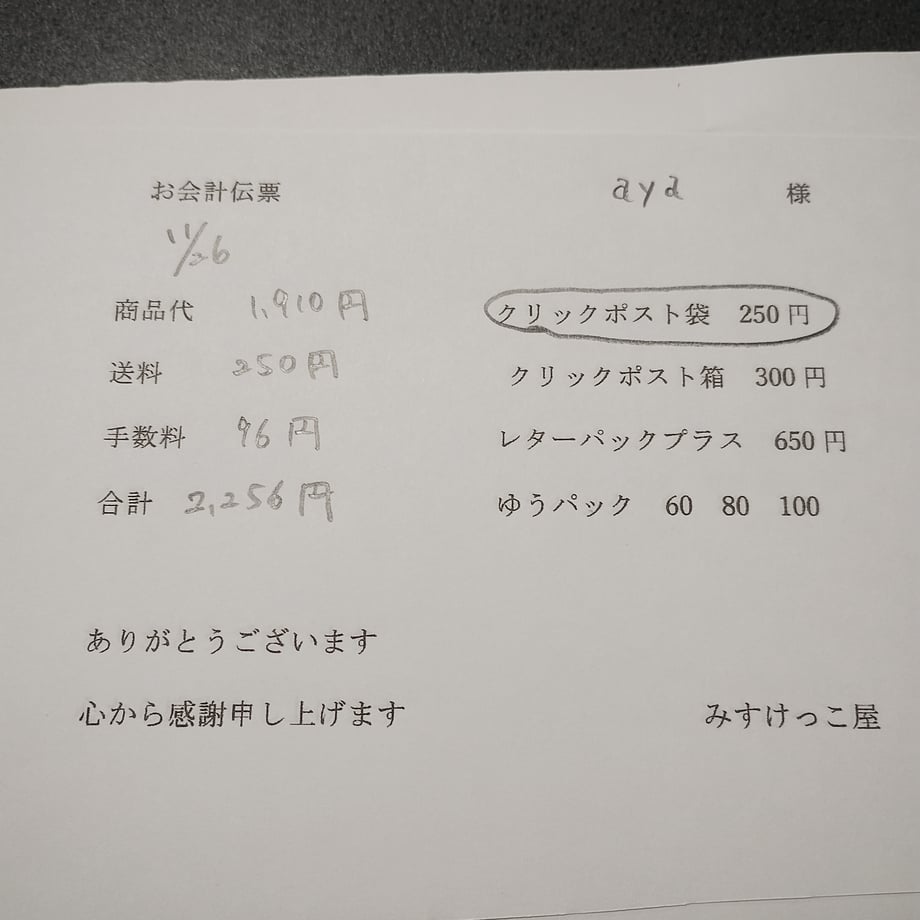 お会計伝票
aya 様
11/26
商品代 1,910円
クリックポスト袋 250円
送料 250円
クリックポスト箱 300円
手数料 96円
レターパックプラス 650円
合計 2,256円
ゆうパック 60 80 100
ありがとうございます
心から感謝申し上げます
みすけっこ屋